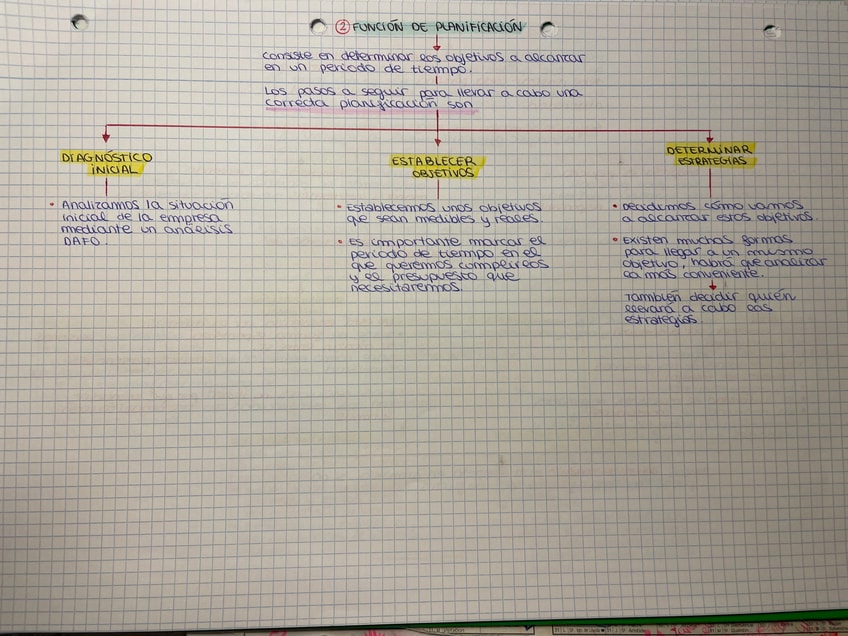 ② FUNCIÓN DE PLANIFICACIÓN
Consiste en determinar los objetivos a alcanzar
en un período de tiempo.
Los pasos a seguir para llevar a cabo una
correcta planificación son
DIAGNÓSTICO
INICIAL
• Analizamos la situación
inicial de la empresa
mediante un análisis
DAFO.
ESTABLECER
OBJETIVOS
• Establecemos unos objetivos
que sean medibles y reales.
• Es importante marcar el
período de tiempo en el
que queremos cumplirlos
y el presupuesto que
necesitaremos.
DETERMINAR
ESTRATEGIAS
• Decidimos cómo vamos
a alcanzar estos objetivos.
• Existen muchas formas
para llegar a un mismo
objetivo, habrá que analizar
la más conveniente.
También decidir quién
llevará a cabo las
estrategias.